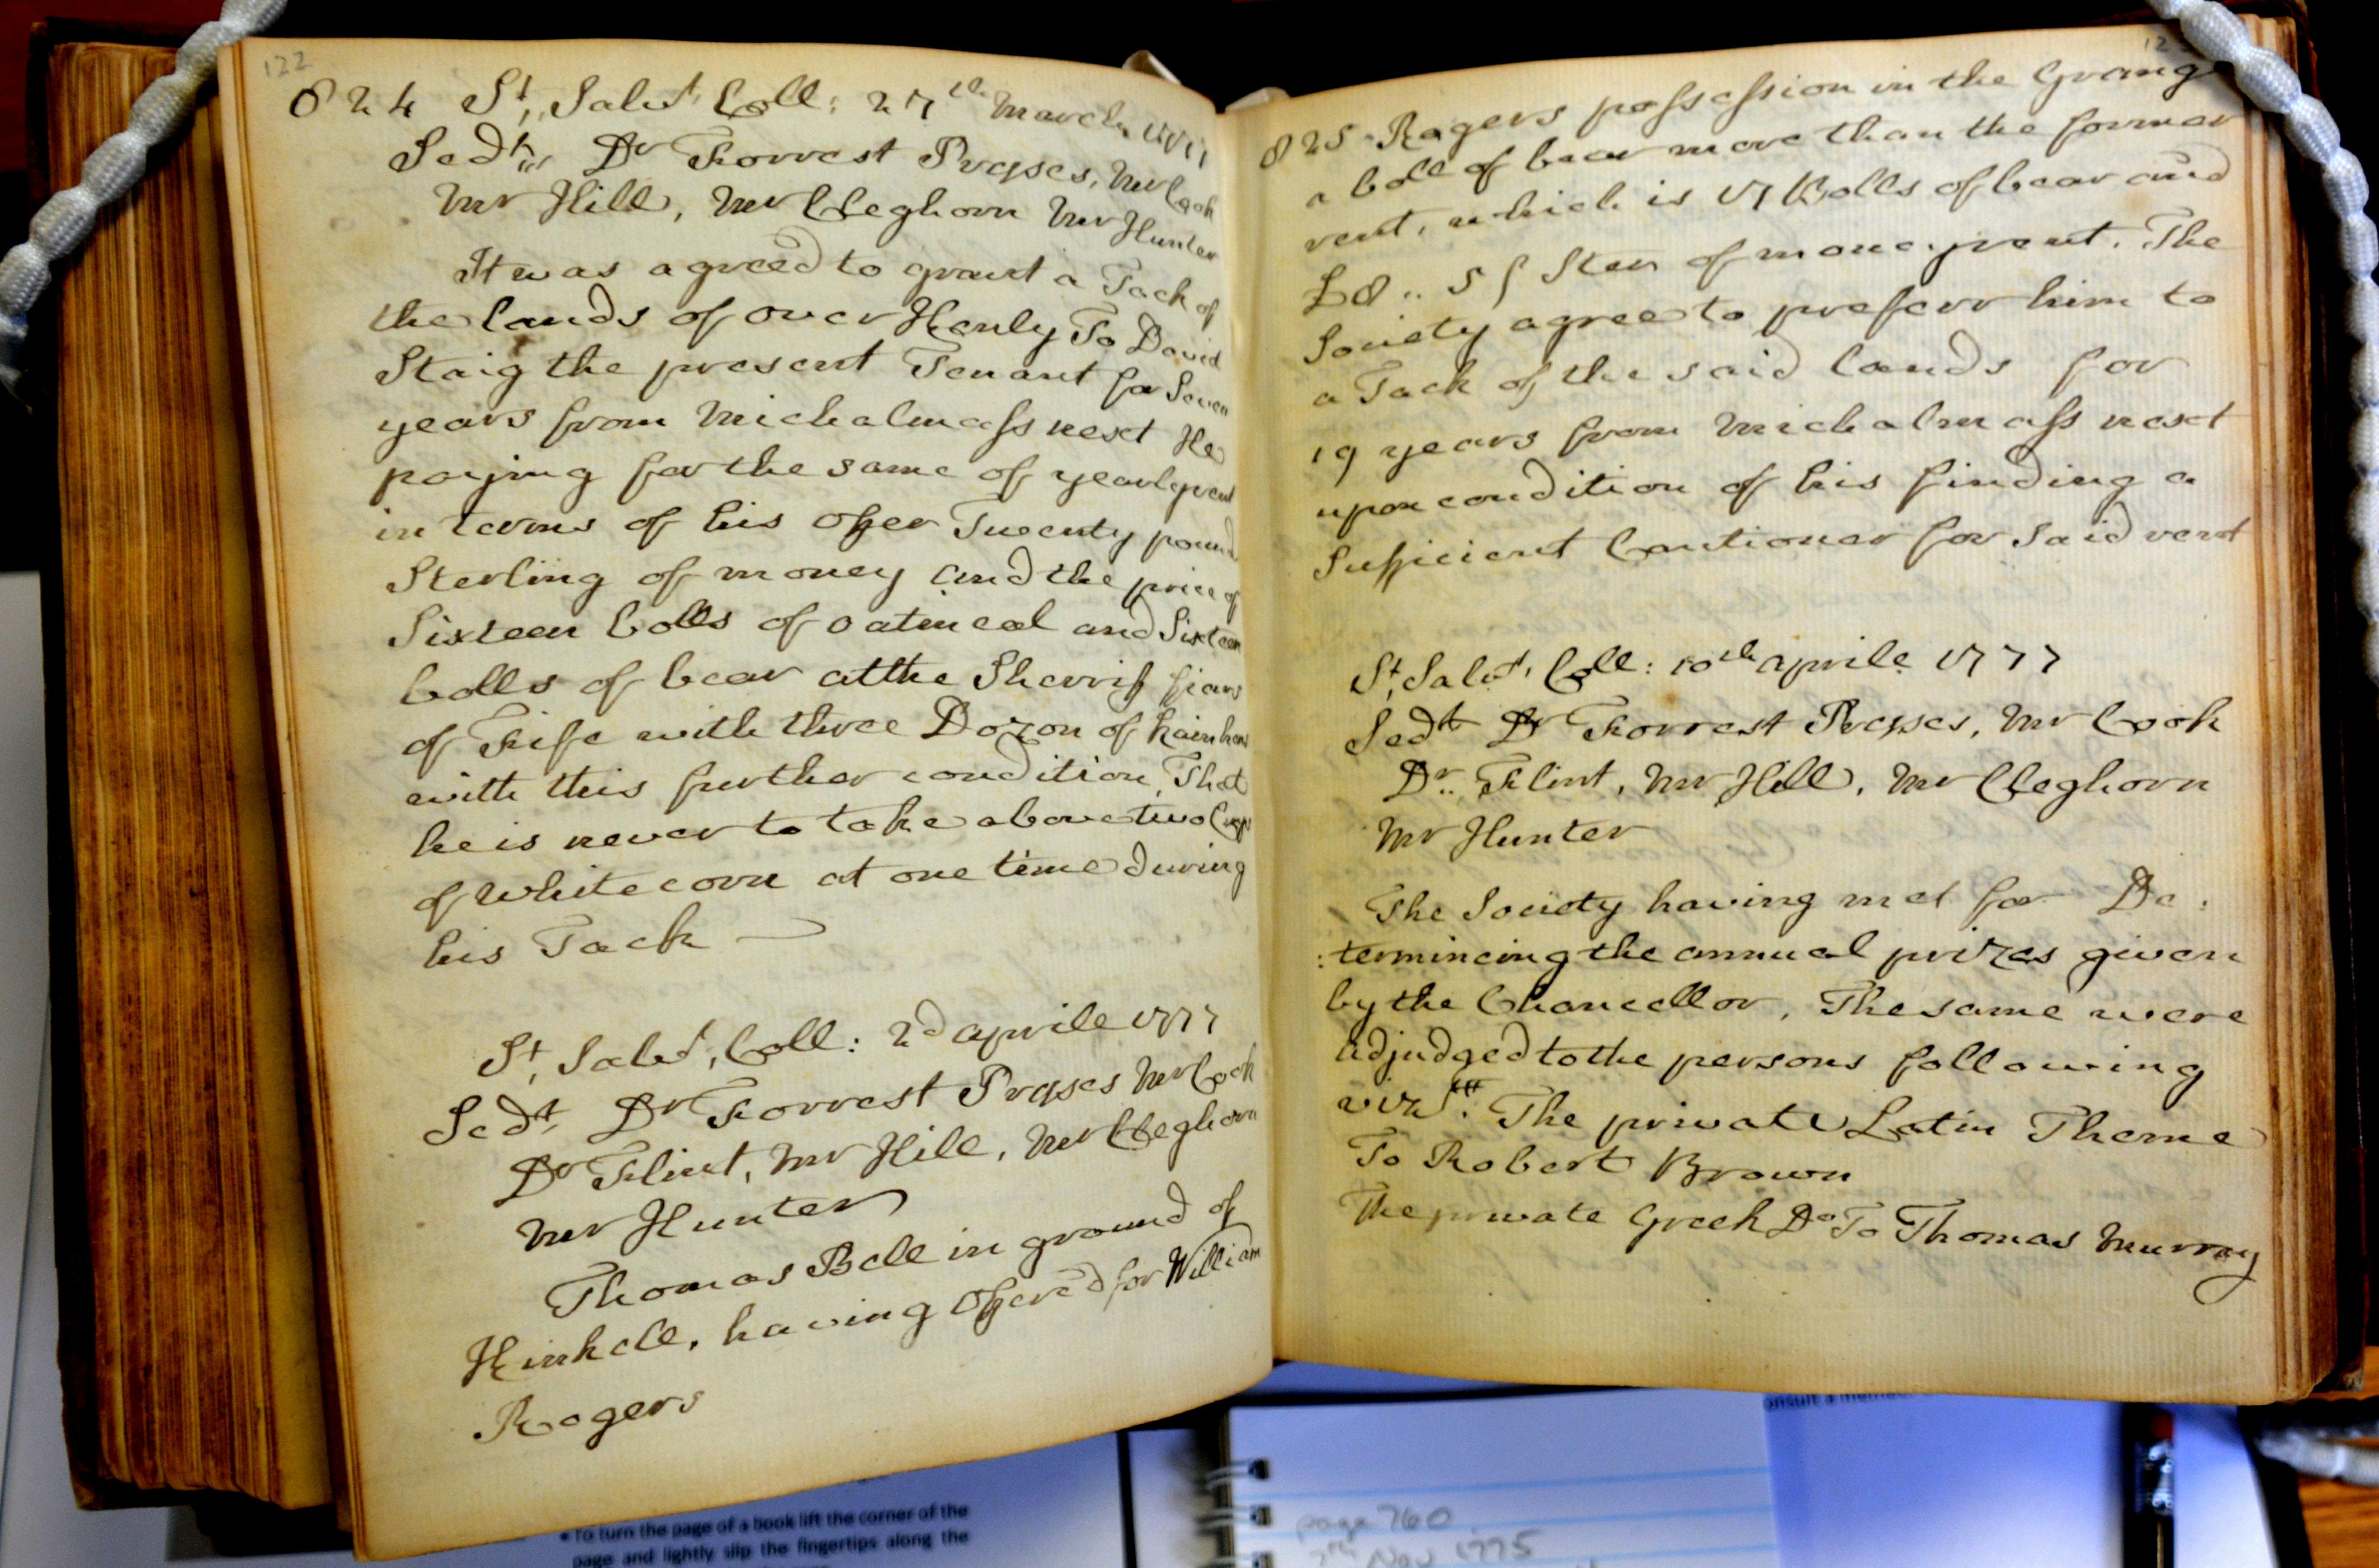 122
824 St, Salvr, Coll: 27th March 1777
Sedt,, Dr Forrest Præses, Mr Cook
Mr Hill, Mr Cleghorn Mr Hunter
It was agreed to grant a Tack of
the lands of over Kenly To David
Staig the present Tenant for Seven
years from Michalmass next He
paying for the same of yearly rent
in terms of his offer Twenty pound
Sterling of money and the price of
Sixteen bolls of oatmeal and Sixteen
bolls of bear at the Sherriff fiars
of Fife with three Dozon of kain hens
with this further condition, That
he is never to take above two Crops
of White corn at one time during
his Tack —
St, Salvr, Coll: 2d aprile 1777
Sedt, Dr Forrest Præses Mr Cook
Dr Flint, Mr Hill, Mr Cleghorn
Mr Hunter
Thomas Bell in ground of
Kinkell, having offered for William
Rogers
825 Rogers possession in the Grange
a boll of bear more than the former
rent, which is 17 Bolls of bear and
£8 .. 5 ʃ Ster of money rent. The
Society agree to preferr him to
a Tack of the said lands for
19 years from Michalmass next
upon condition of his finding a
Sufficient Cautioner for said rent
St, Salvr, Coll: 10th aprile 1777
Sedt Dr Forrest Præses, Mr Cook
Dr.. Flint, Mr Hill, Mr Cleghorn
Mr Hunter
The Society having met for De:
:termineing the annual prizes given
by the Chancellor, The same were
adjudged to the persons following
vizt. The private Latin Theme
To Robert Brown
The private Greek Do To Thomas Murray
• To turn the page of a book lift the corner of the
page and lightly slip the fingertips along the
page 760
7th Nov 1775